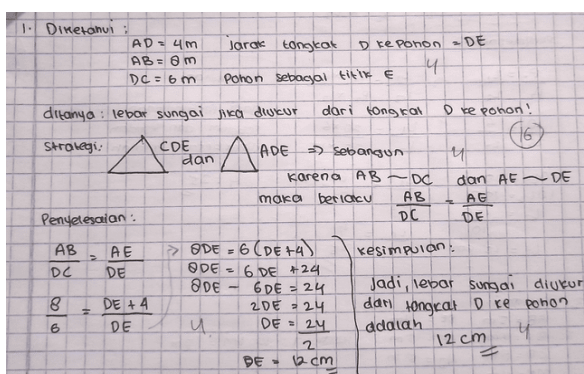 1. Diketahui :
AD = 4m jarak tongkat D ke pohon = DE
AB = 8 m
DC = 6 m Pohon sebagai titik E
4
ditanya : lebar sungai jika diukur dari tongkat D ke pohon!
16
Strategi: △ CDE dan △ ADE => sebangun 4
karena AB ~ DC dan AE ~ DE
maka berlaku AB/DC = AE/DE
Penyelesaian :
AB/DC = AE/DE
8/6 = DE + 4/DE
=> 8DE = 6 (DE+4)
8DE = 6 DE + 24
8DE - 6DE = 24
2DE = 24
4 DE = 24/2
DE = 12 cm
kesimpulan :
Jadi, lebar sungai diukur
dari tongkat D ke pohon
adalah
12 cm 4